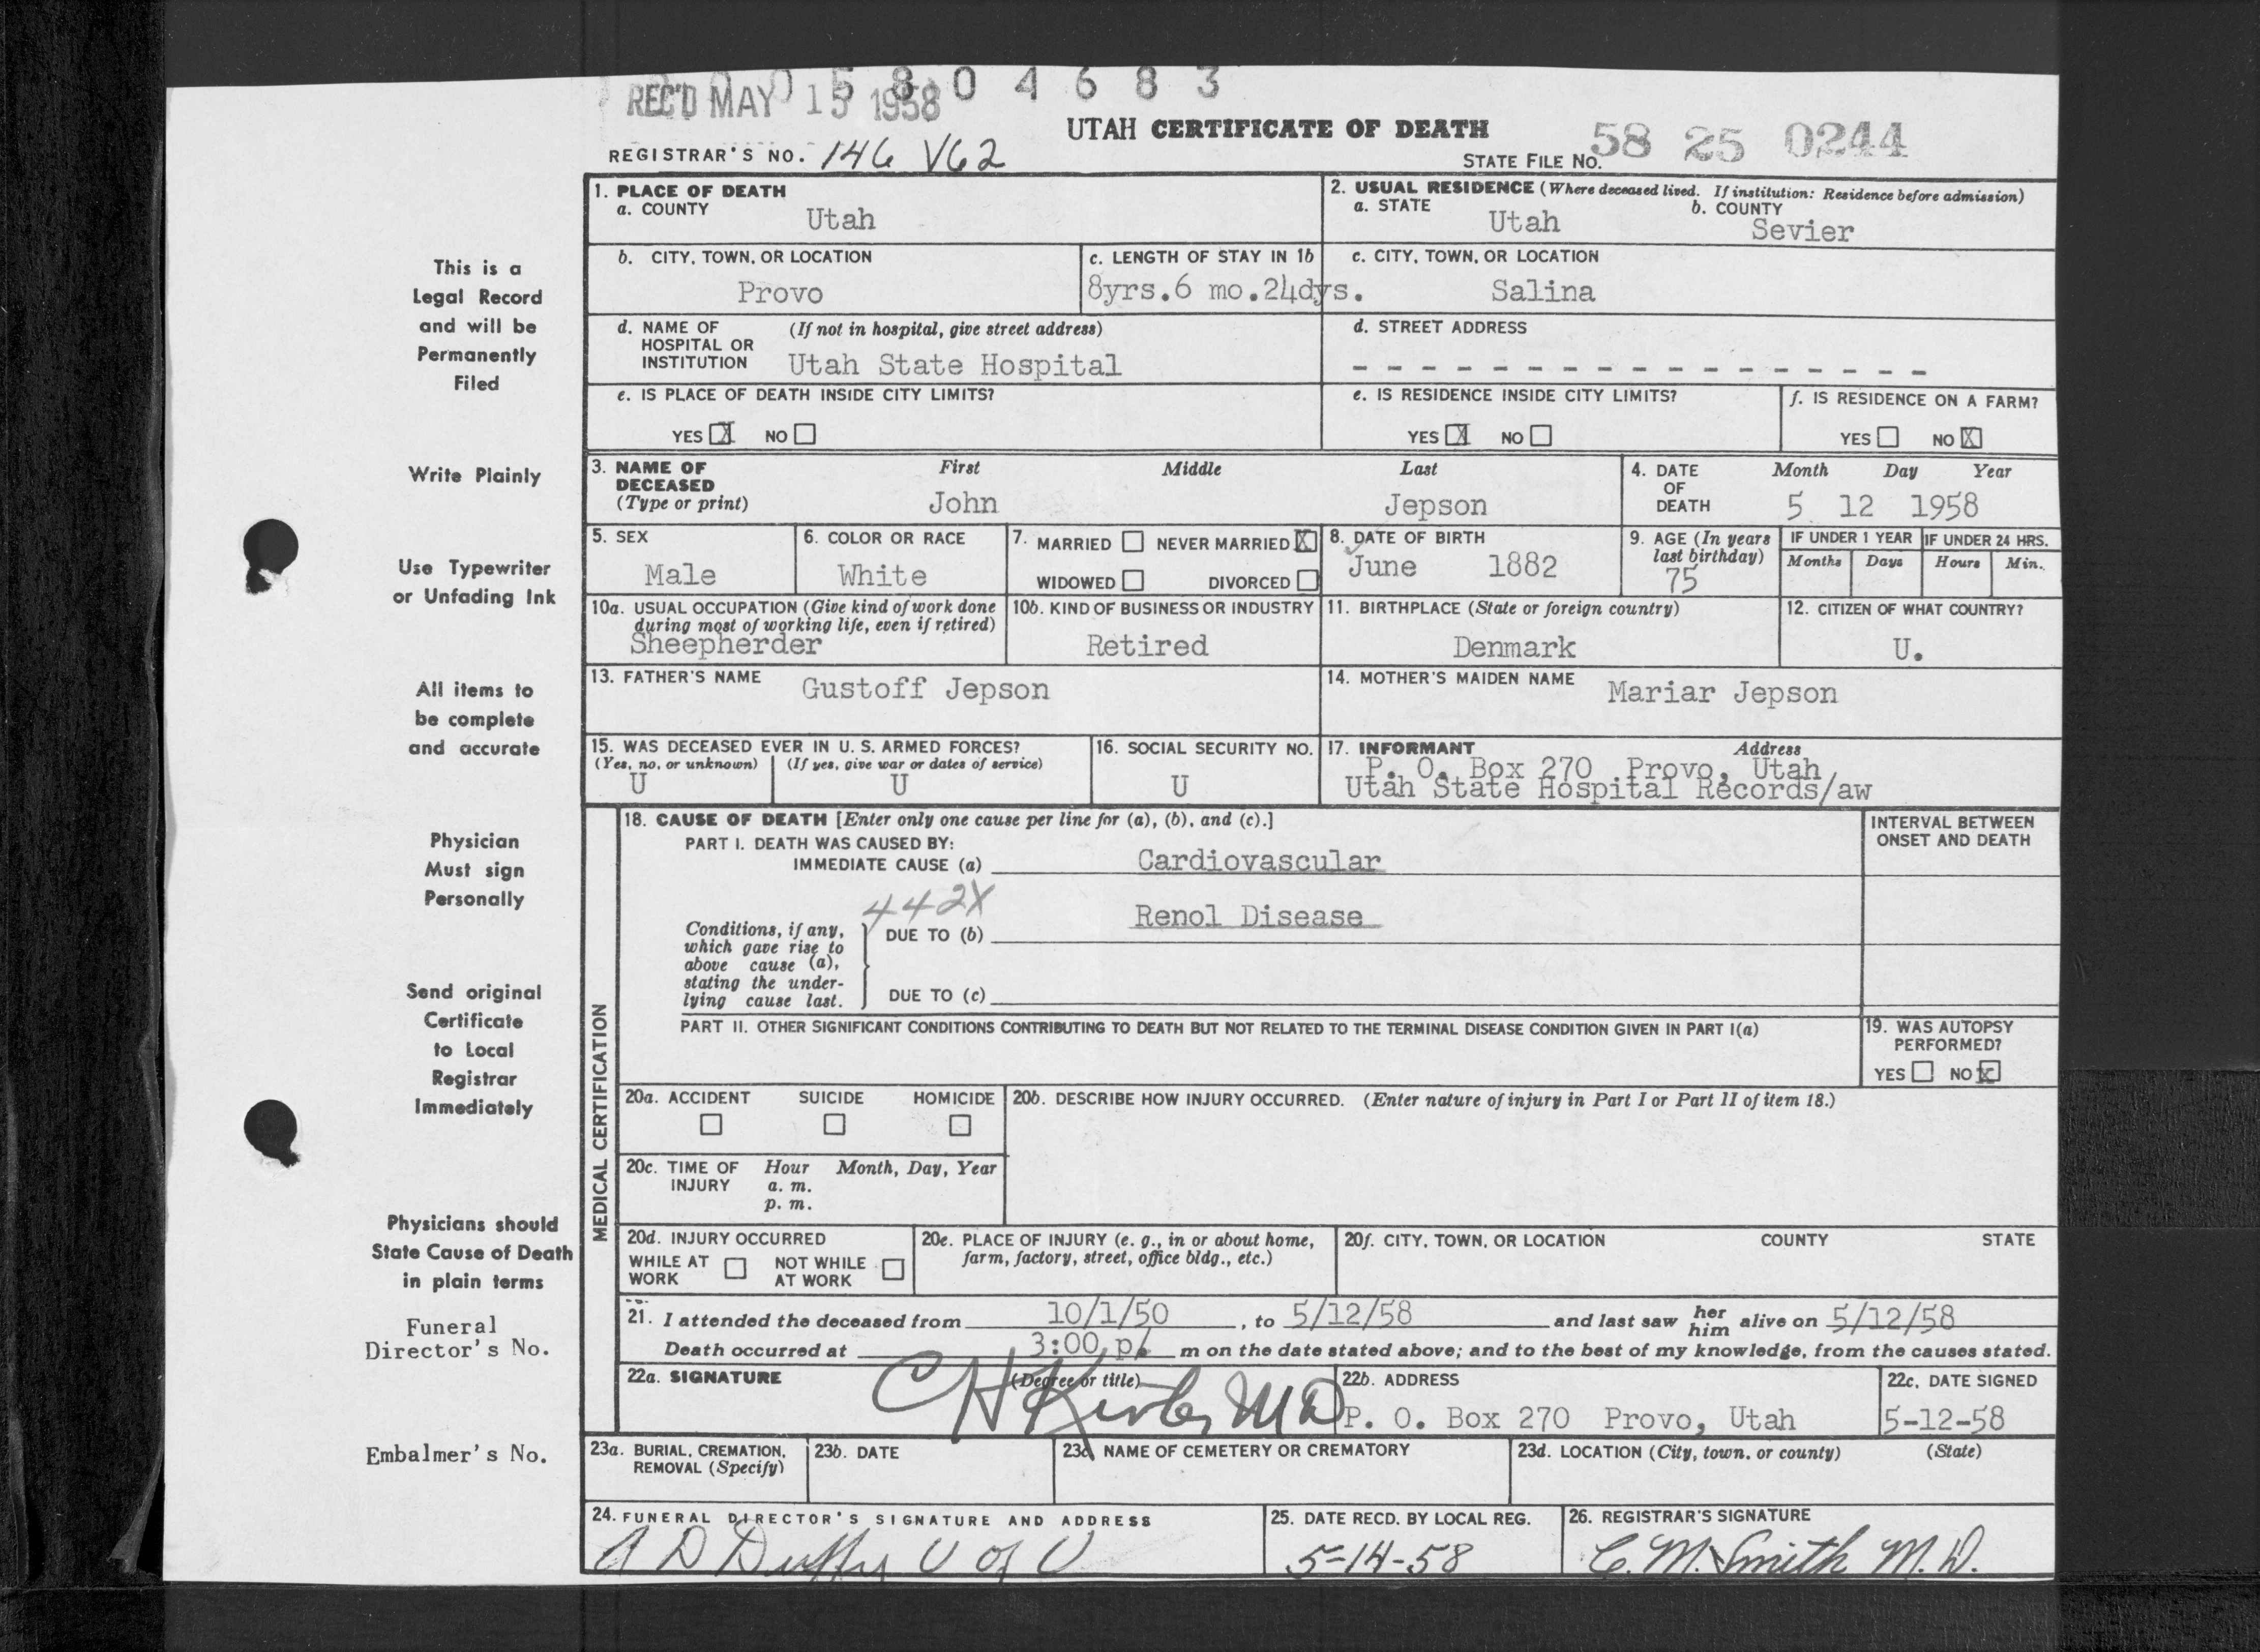 5 8 0 4 6 8 3
REC'D MAY 15 1958
UTAH CERTIFICATE OF DEATH
REGISTRAR'S NO. 146 V62
STATE FILE NO. 58 25 0244
This is a
Legal Record
and will be
Permanently
Filed
Write Plainly
Use Typewriter
or Unfading Ink
All items to
be complete
and accurate
Physician
Must sign
Personally
Send original
Certificate
to Local
Registrar
Immediately
Physicians should
State Cause of Death
in plain terms
Funeral
Director's No.
Embalmer's No.
1. PLACE OF DEATH
a. COUNTY
Utah
2. USUAL RESIDENCE (Where deceased lived. If institution: Residence before admission)
a. STATE
Utah
b. COUNTY
Sevier
b. CITY, TOWN, OR LOCATION
Provo
c. LENGTH OF STAY IN 1b
8yrs.6 mo.24dys.
c. CITY, TOWN, OR LOCATION
Salina
d. NAME OF (If not in hospital, give street address)
HOSPITAL OR
INSTITUTION Utah State Hospital
d. STREET ADDRESS
- - - - - - - - - - - - - - - - -
e. IS PLACE OF DEATH INSIDE CITY LIMITS?
YES X NO
e. IS RESIDENCE INSIDE CITY LIMITS?
YES X NO
f. IS RESIDENCE ON A FARM?
YES NO X
3. NAME OF DECEASED (Type or print)
First Middle Last
John Jepson
4. DATE OF DEATH
Month Day Year
5 12 1958
5. SEX
Male
6. COLOR OR RACE
White
7. MARRIED NEVER MARRIED X
WIDOWED DIVORCED
8. DATE OF BIRTH
June 1882
9. AGE (In years last birthday)
75
IF UNDER 1 YEAR
Months Days
IF UNDER 24 HRS.
Hours Min.
10a. USUAL OCCUPATION (Give kind of work done
during most of working life, even if retired)
Sheepherder
10b. KIND OF BUSINESS OR INDUSTRY
Retired
11. BIRTHPLACE (State or foreign country)
Denmark
12. CITIZEN OF WHAT COUNTRY?
U.
13. FATHER'S NAME
Gustoff Jepson
14. MOTHER'S MAIDEN NAME
Mariar Jepson
15. WAS DECEASED EVER IN U. S. ARMED FORCES?
(Yes, no, or unknown) (If yes, give war or dates of service)
U U
16. SOCIAL SECURITY NO.
U
17. INFORMANT Address
P. O. Box 270 Provo, Utah
Utah State Hospital Records/aw
MEDICAL CERTIFICATION
18. CAUSE OF DEATH [Enter only one cause per line for (a), (b), and (c).]
PART I. DEATH WAS CAUSED BY:
IMMEDIATE CAUSE (a) Cardiovascular
INTERVAL BETWEEN
ONSET AND DEATH
442X
Renol Disease
Conditions, if any,
which gave rise to
above cause (a),
stating the under-
lying cause last.
DUE TO (b)
DUE TO (c)
PART II. OTHER SIGNIFICANT CONDITIONS CONTRIBUTING TO DEATH BUT NOT RELATED TO THE TERMINAL DISEASE CONDITION GIVEN IN PART I(a)
19. WAS AUTOPSY
PERFORMED?
YES NO X
20a. ACCIDENT SUICIDE HOMICIDE
20b. DESCRIBE HOW INJURY OCCURRED. (Enter nature of injury in Part I or Part II of item 18.)
20c. TIME OF INJURY
Hour Month, Day, Year
a. m.
p. m.
20d. INJURY OCCURRED
WHILE AT WORK
NOT WHILE AT WORK
20e. PLACE OF INJURY (e. g., in or about home,
farm, factory, street, office bldg., etc.)
20f. CITY, TOWN, OR LOCATION COUNTY STATE
21. I attended the deceased from 10/1/50, to 5/12/58 and last saw her him alive on 5/12/58
Death occurred at 3:00 p. m on the date stated above; and to the best of my knowledge, from the causes stated.
22a. SIGNATURE (Degree or title)
C H Kirby MD
22b. ADDRESS
P. O. Box 270 Provo, Utah
22c. DATE SIGNED
5-12-58
23a. BURIAL, CREMATION,
REMOVAL (Specify)
23b. DATE
23c. NAME OF CEMETERY OR CREMATORY
23d. LOCATION (City, town, or county) (State)
24. FUNERAL DIRECTOR'S SIGNATURE AND ADDRESS
A D Duffy U of U
25. DATE RECD. BY LOCAL REG.
5-14-58
26. REGISTRAR'S SIGNATURE
C. M. Smith M.D.